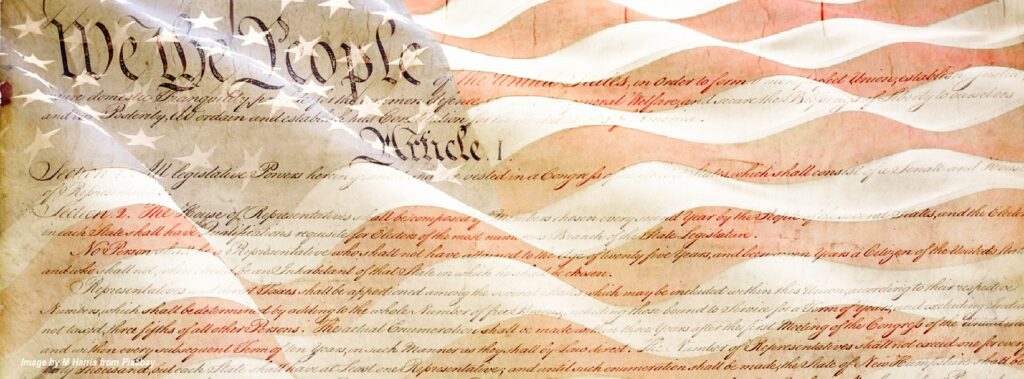 We the People of the United States, in Order to form a Union, establish Justice
domestic Tranquility for the common defence Welfare, and secure the Blessings of Liberty to ourselves
and our Posterity, do ordain and establish this Constitution for the of America.
Article. I.
Section 1. All legislative Powers herein be vested in a Congress of States, which shall consist of a Senate and House
of Representatives
Section 2. The House of Representatives shall be composed of chosen every second Year by the People of the several States, and the Electors
in each State shall have Qualifications requisite for Electors of the most numerous Branch of the State Legislature.
No Person shall be a Representative who shall not have attained to the Age of twenty five Years, and been seven Years a Citizen of the United States
and who shall not, when elected, be an Inhabitant of that State in which he shall be chosen.
Representatives and direct Taxes shall be apportioned among the several States which may be included within this Union, according to their respective
Numbers, which shall be determined by adding to the whole Number of free Persons, including those bound to Service for a Term of Years, and excluding Indians
not taxed, three fifths of all other Persons. The actual Enumeration shall be made within three Years after the first Meeting of the Congress of the United States
and within every subsequent Term of ten Years, in such Manner as they shall by Law direct. The Number of Representatives shall not exceed one for every
thirty Thousand, but each State shall have at Least one Representative; and until such enumeration shall be made, the State of New Hampshire shall be
Image by M Harris from Pixabay